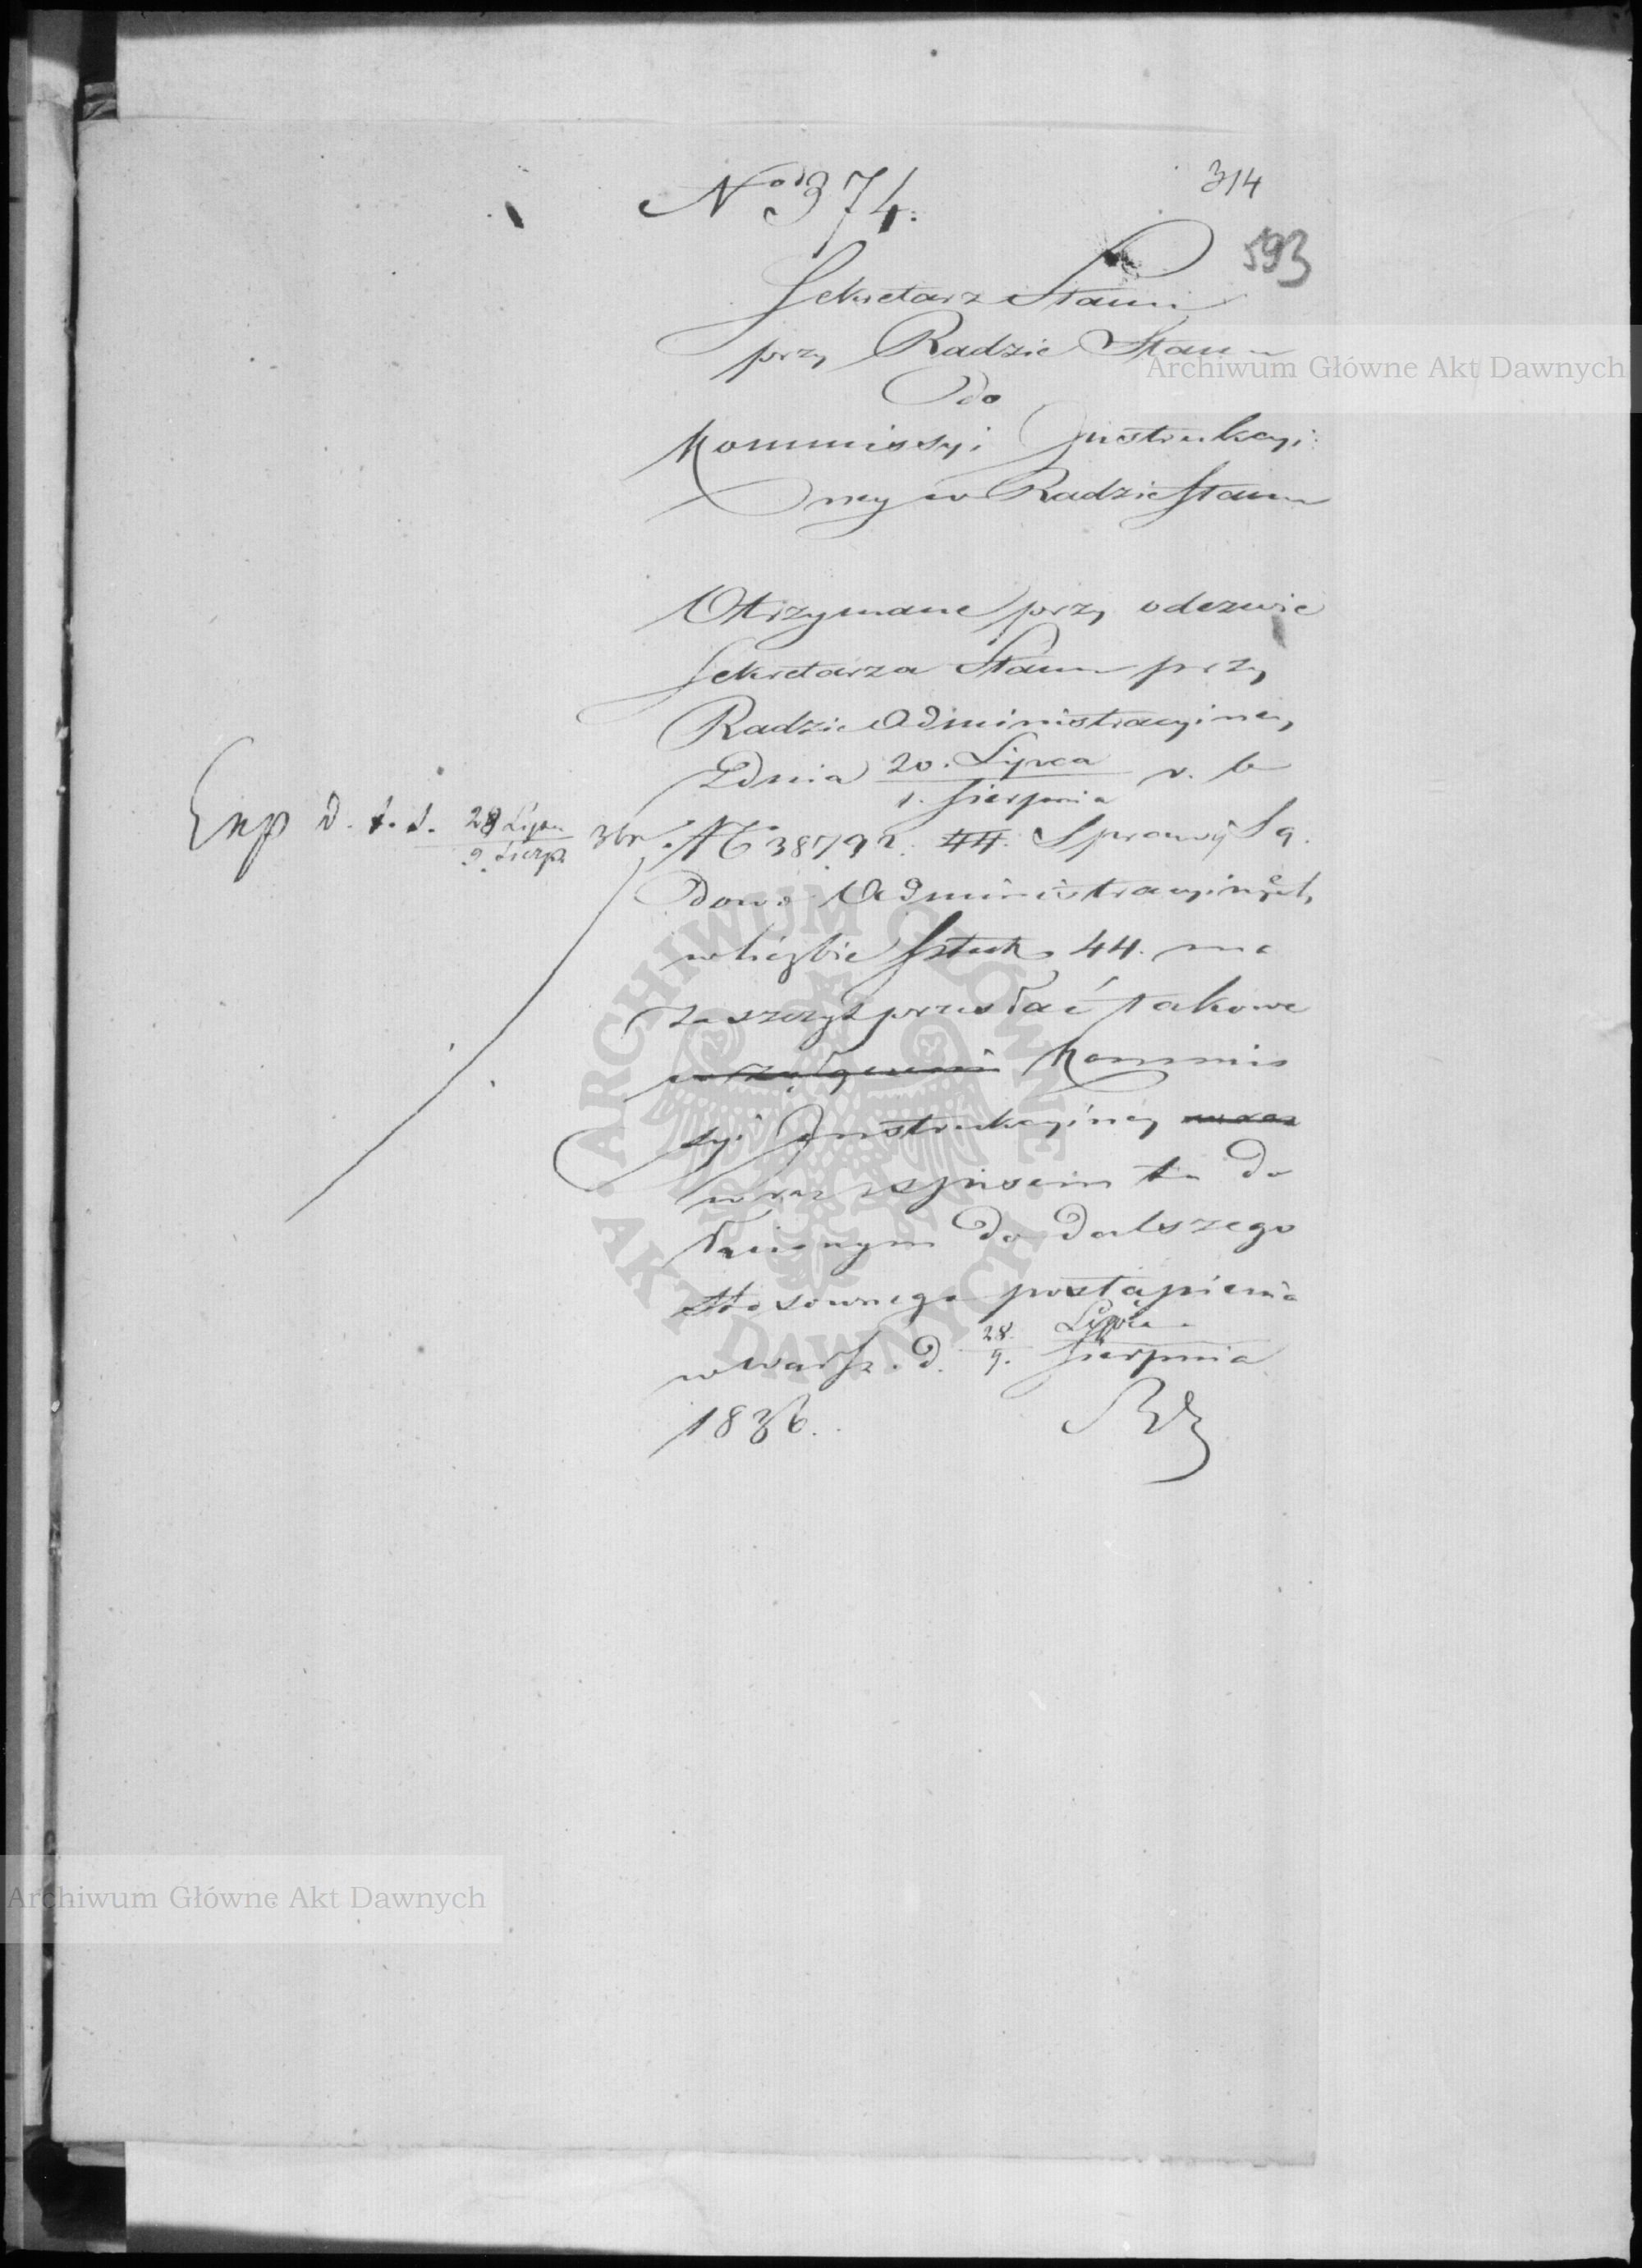 314
No 374.
593
Sekretarz Stanu
przy Radzie Stanu
do
Kommissyi Instrukcyi
ney w Radzie Stanu
Otrzymane przy odezwie
Sekretarza Stanu przy
Radzie Administracyiney
z dnia 20. Lipca r. b
1. Sierpnia
Exp d. 28 Lipca 36 r.
9. Sierp.
N 38792. 44. Sprawy Są
dowo Administracyinych
w liczbie sztuk 44. ma
zaszczyt przesłać takowe
Kommis
syi Instrukcyiney
wraz z spisem tu do
łączonym do dalszego
stosownego postąpienia
w Warsz. d. 28. Lipca
9. Sierpnia
1836.
Archiwum Główne Akt Dawnych
ARCHIWUM GŁÓWNE AKT DAWNYCH
Archiwum Główne Akt Dawnych